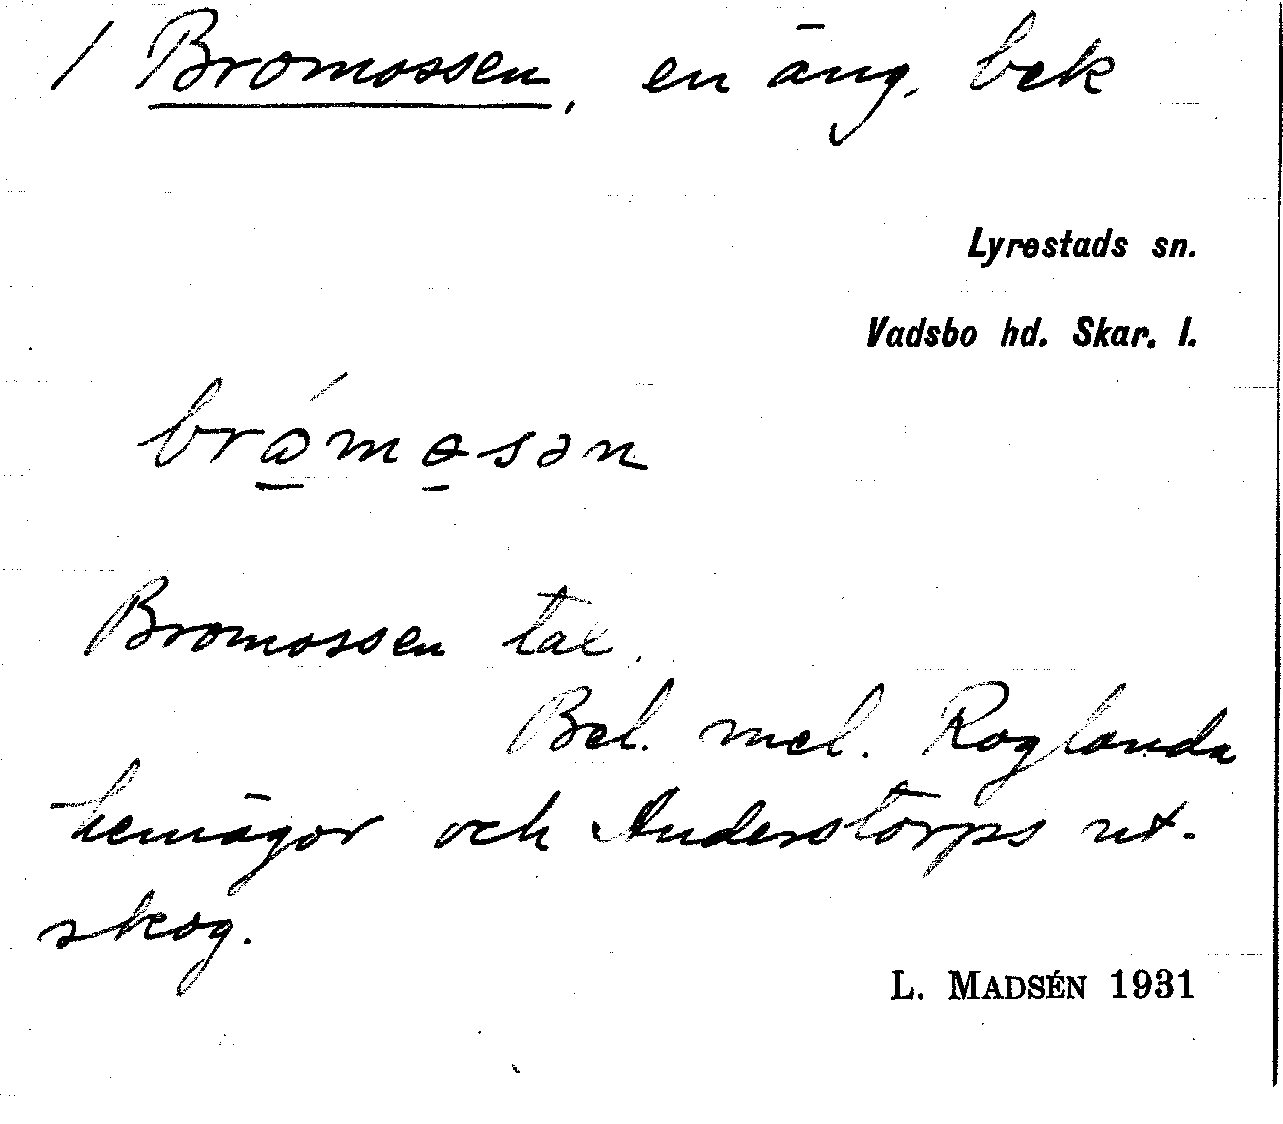 / Bromossen, en äng, bek
Lyrestads sn.
Vadsbo hd. Skar. l.
Bromossen tal.
Bel. mel. Roglanda
hemägor och Anderstorps ut-
skog.
L. MADSÉN 1931